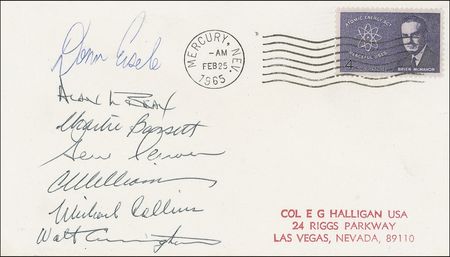 Donn Eisele
Alan L Bean
Charlie Bassett
Gene Cernan
CC Williams
Michael Collins
Walt Cunningham
MERCURY, NEV.
-AM
FEB 25
1965
ATOMIC ENERGY ACT
PEACEFUL USES
4¢
BRIEN McMAHON
COL E G HALLIGAN USA
24 RIGGS PARKWAY
LAS VEGAS, NEVADA, 89110